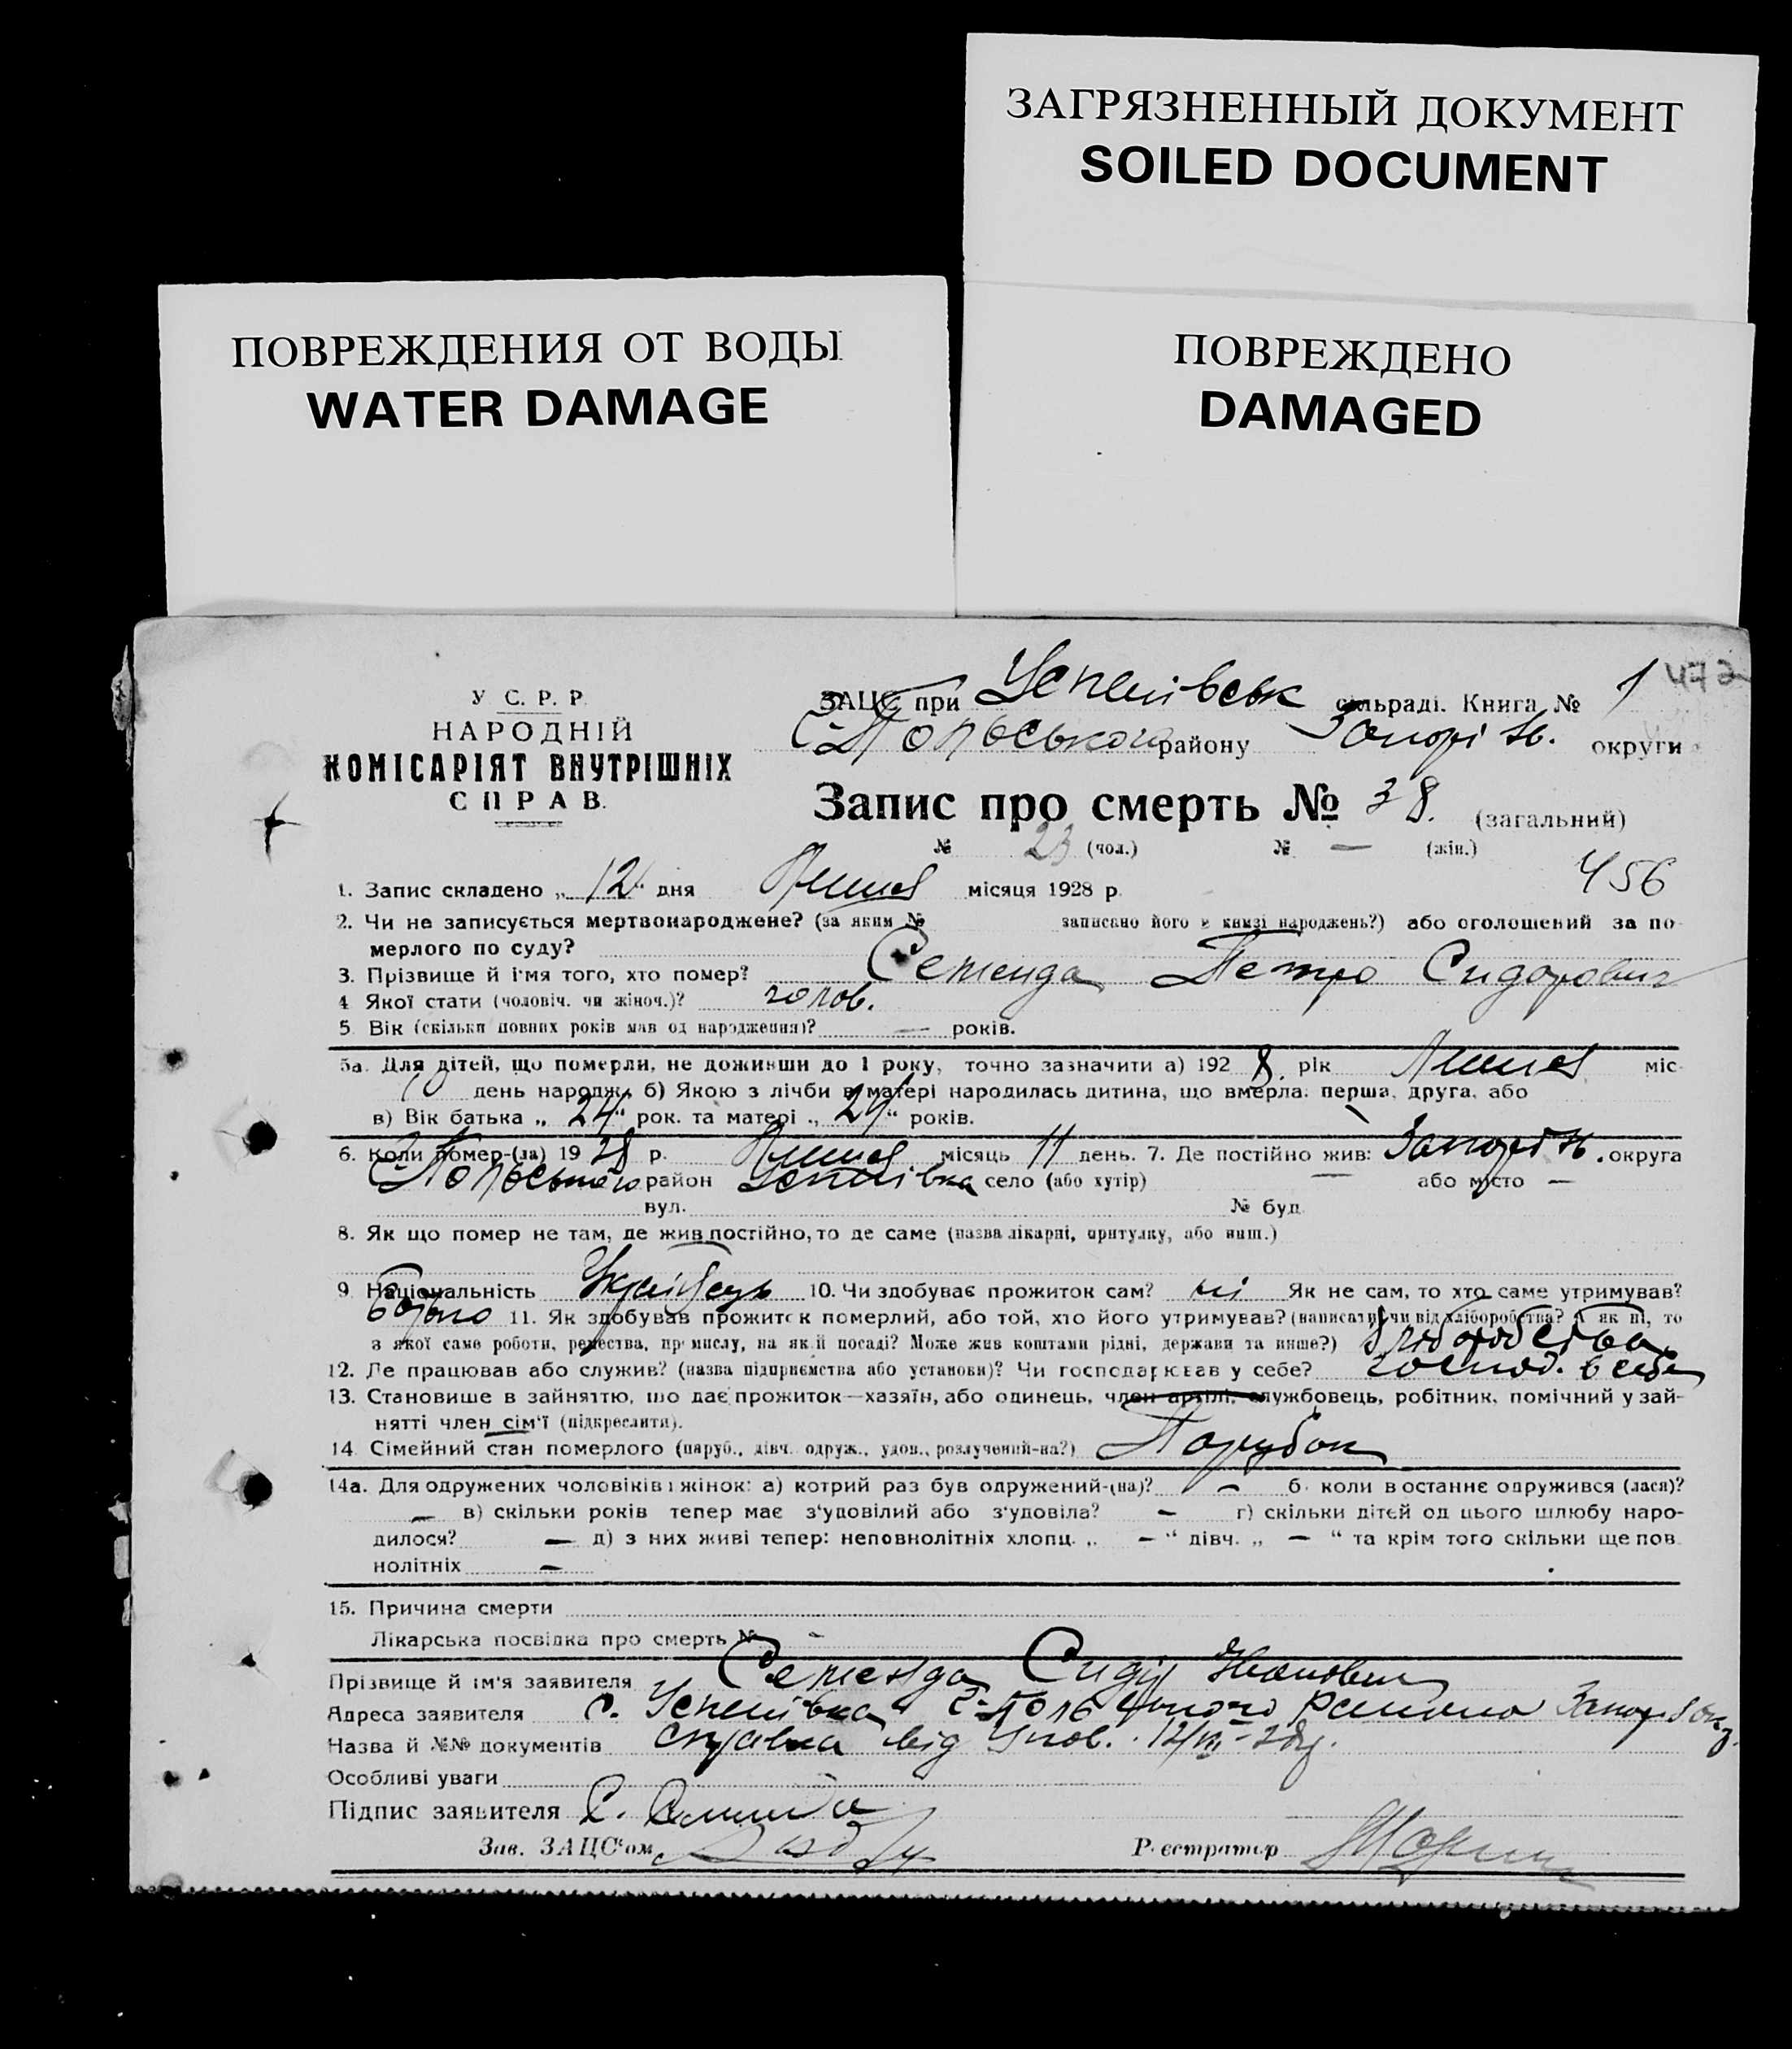 ЗАГРЯЗНЕННЫЙ ДОКУМЕНТ
SOILED DOCUMENT
ПОВРЕЖДЕНИЯ ОТ ВОДЫ
WATER DAMAGE
ПОВРЕЖДЕНО
DAMAGED
472
У С. Р. Р.
НАРОДНІЙ
КОМІСАРІЯТ ВНУТРІШНІХ
СПРАВ.
ЗАЦС при Успенівськ сільраді. Книга № 1
району округи
Запис про смерть № 38. (загальний)
№ 23 (чол.) № — (жін.)
456
1. Запис складено „ 12 " дня місяця 1928 р.
2. Чи не записується мертвонароджене? (за яким № записано його в книзі народжень?) або оголошений за по-
мерлого по суду?
3. Прізвище й ім'я того, хто помер? Петро Сидорович
4. Якої стати (чоловіч. чи жіноч.)? чолов.
5. Вік (скільки повних років мав од народження)? — років.
5а. Для дітей, що померли, не доживши до 1 року, точно зазначити а) 192 8. рік міс.
10 день народж. б) Якою з лічби в матері народилась дитина, що вмерла: перша, друга, або
в) Вік батька „ 24 " рок. та матері „ 24 " років.
6. Коли помер-(ла) 19 28 р. місяць 11 день. 7. Де постійно жив: округа
район Успенівка село (або хутір) — або місто —
вул. № буд.
8. Як що помер не там, де жив постійно, то де саме (назва лікарні, притулку, або инш.)
9. Національність Українець 10. Чи здобуває прожиток сам? ні Як не сам, то хто саме утримував?
батько 11. Як здобував прожиток померлий, або той, хто його утримував? (написати чи від хліборобства? А як ні, то
з якої саме роботи, ремества, промислу, на якій посаді? Може жив коштами рідні, держави та инше?) хліборобства
12. Де працював або служив? (назва підприємства або установи)? Чи господарював у себе? господ. в себе
13. Становище в зайняттю, що дає прожиток—хазяїн, або одинець, член артілі, службовець, робітник, помічний у зай-
нятті член сім'ї (підкреслити).
14. Сімейний стан померлого (паруб., дівч. одруж., удов., розлучений-на?) Парубок
14а. Для одружених чоловіків і жінок: а) котрий раз був одружений-(на)? — б. коли востаннє одружився (лася)?
— в) скільки років тепер має з'удовілий або з'удовіла? — г) скільки дітей од цього шлюбу наро-
дилося? — д) з них живі тепер: неповнолітніх хлопц. „ — " дівч. „ — " та крім того скільки ще пов-
нолітніх —
15. Причина смерти
Лікарська посвідка про смерть № -
Прізвище й ім'я заявителя Сидір Іванович
Адреса заявителя с. Успенівка
Назва й №№ документів справка від
Особливі уваги
Підпис заявителя С.
Зав. ЗАЦС'ом
Реєстратор